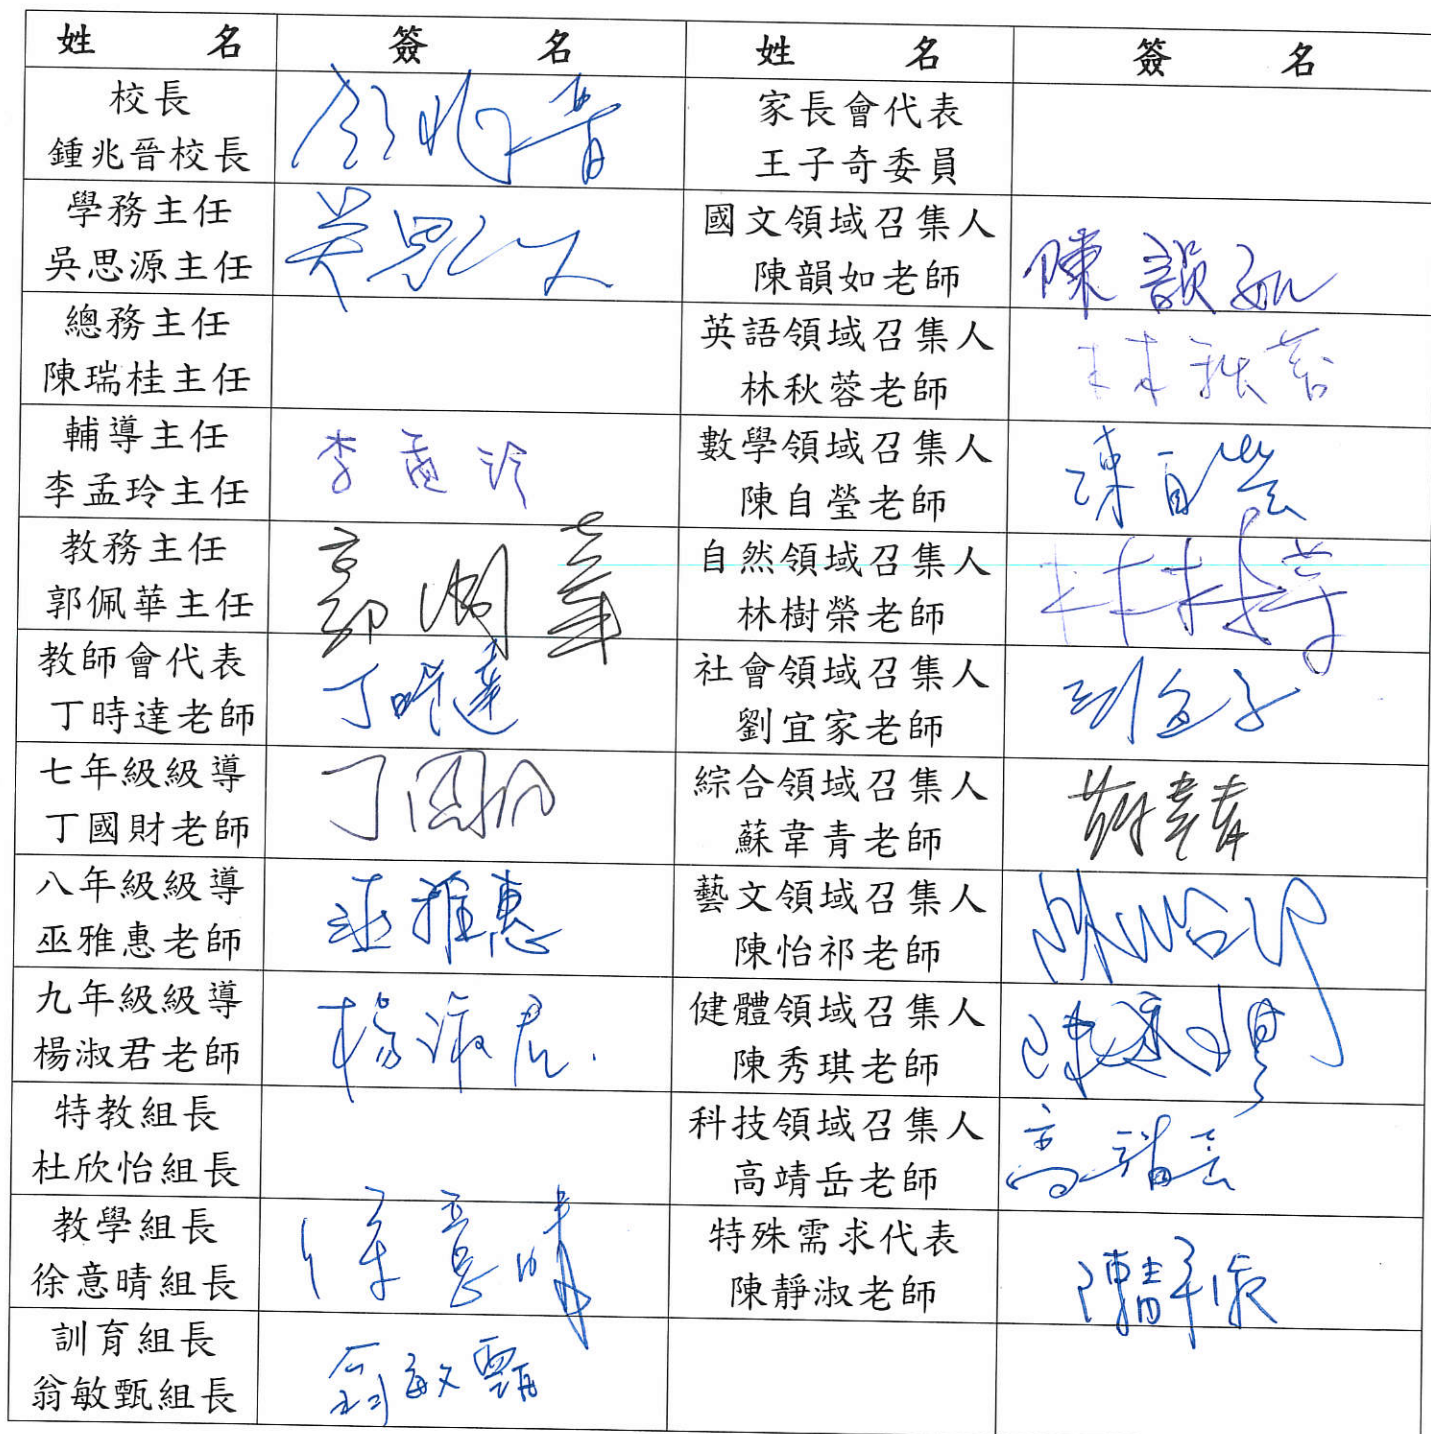 姓 名 簽 名 姓 名 簽 名
校長
鍾兆晉校長
鍾兆晉
家長會代表
王子奇委員
學務主任
吳思源主任
吳思
國文領域召集人
陳韻如老師
陳韻如
總務主任
陳瑞桂主任
英語領域召集人
林秋蓉老師
林秋蓉
輔導主任
李孟玲主任
李孟玲
數學領域召集人
陳自瑩老師
陳自瑩
教務主任
郭佩華主任
郭佩華
自然領域召集人
林樹榮老師
林樹榮
教師會代表
丁時達老師
丁時達
社會領域召集人
劉宜家老師
劉宜家
七年級級導
丁國財老師
丁國財
綜合領域召集人
蘇韋青老師
蘇韋青
八年級級導
巫雅惠老師
巫雅惠
藝文領域召集人
陳怡祁老師
陳怡祁
九年級級導
楊淑君老師
楊淑君.
健體領域召集人
陳秀琪老師
陳
特教組長
杜欣怡組長
科技領域召集人
高靖岳老師
高靖岳
教學組長
徐意晴組長
徐意晴
特殊需求代表
陳靜淑老師
陳靜淑
訓育組長
翁敏甄組長
翁敏甄